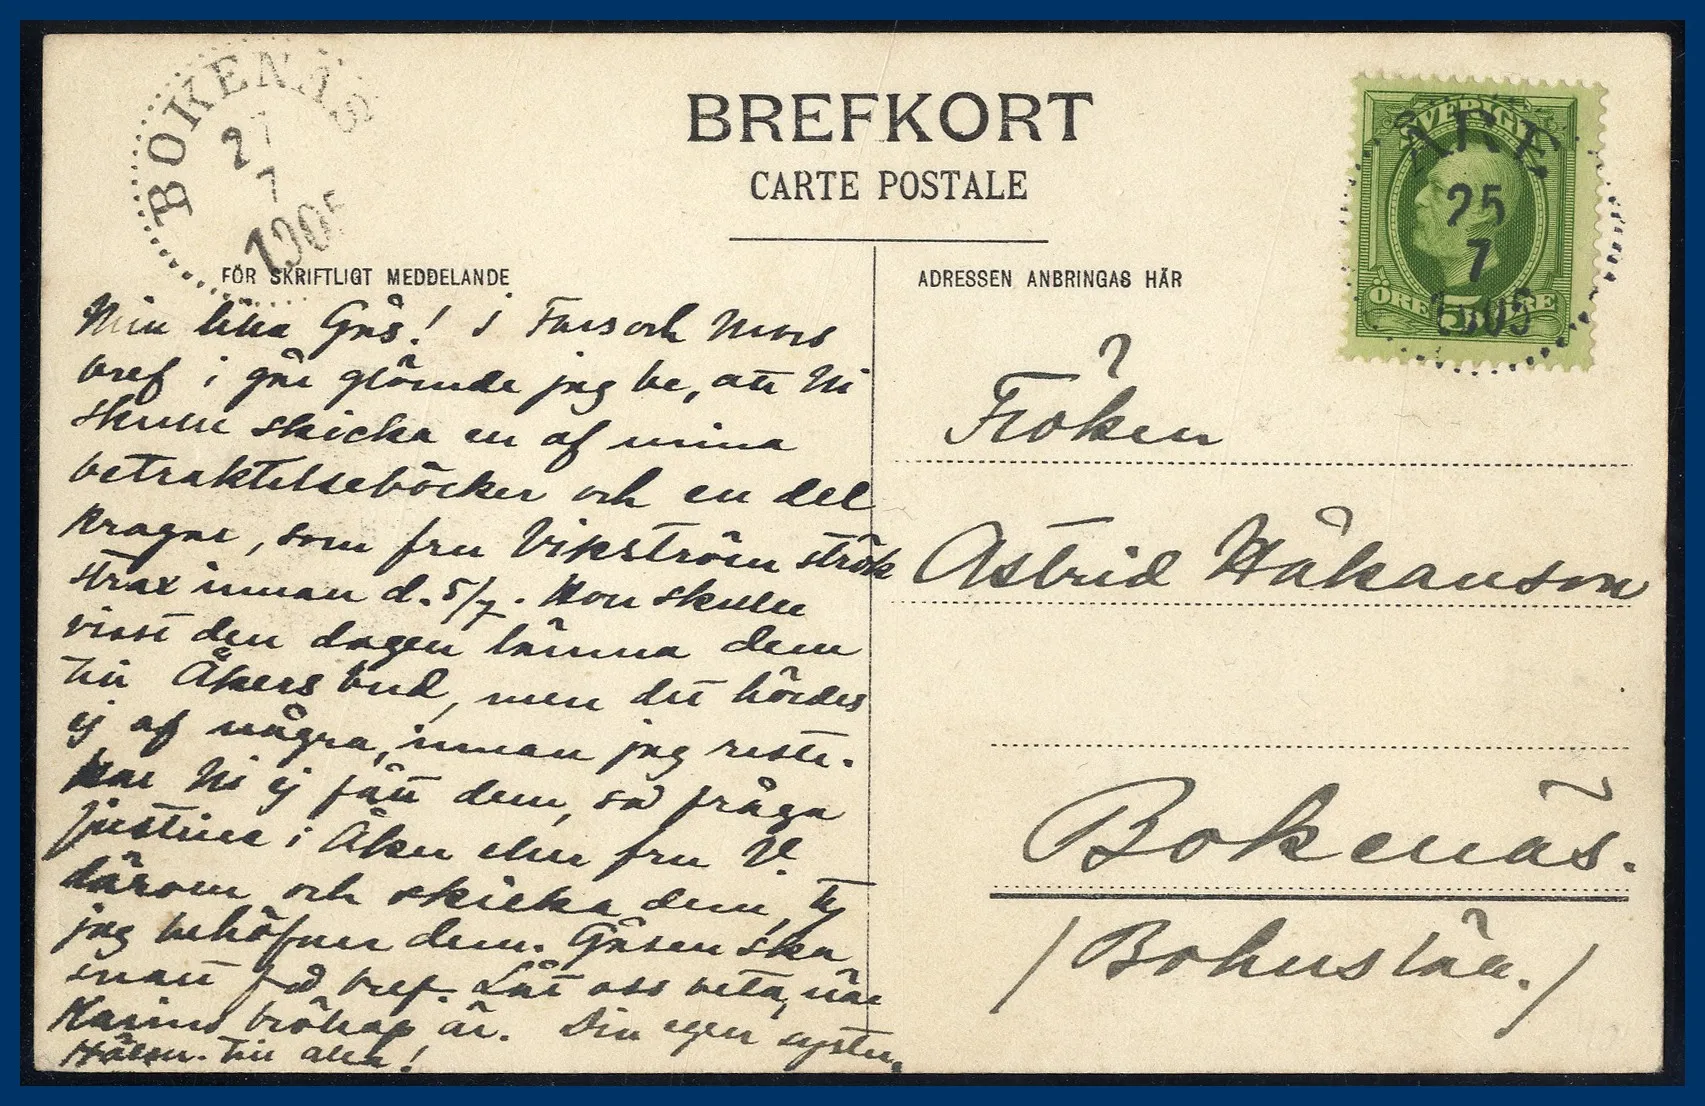 BOKENÄS
27
7
1905
BREFKORT
CARTE POSTALE
SVERIGE
ÅRE
25
7
1905
ÖRE 5 ÖRE
FÖR SKRIFTLIGT MEDDELANDE
ADRESSEN ANBRINGAS HÄR
Min lilla Gås! I Fars och Mors
bref i går glömde jag be, att Ni
skulle skicka en af mina
betraktelseböcker och en del
kragar, som fru Vikström strök
strax innan d. 5/7. Hon skulle
visst den dagen lämna dem
till Åkers bud, men det hördes
ej af några, innan jag reste.
Har Ni ej fått dem, så fråga
Justina i Åker eller fru V.
därom och skicka dem, ty
jag behöfver dem. Gåsen ska
snart få bref. Låt oss veta, när
Karins bröllop är. Din egen syster.
Hälsn. till alla!
Fröken
Astrid Håkanson
Bokenäs.
/Bohuslän./